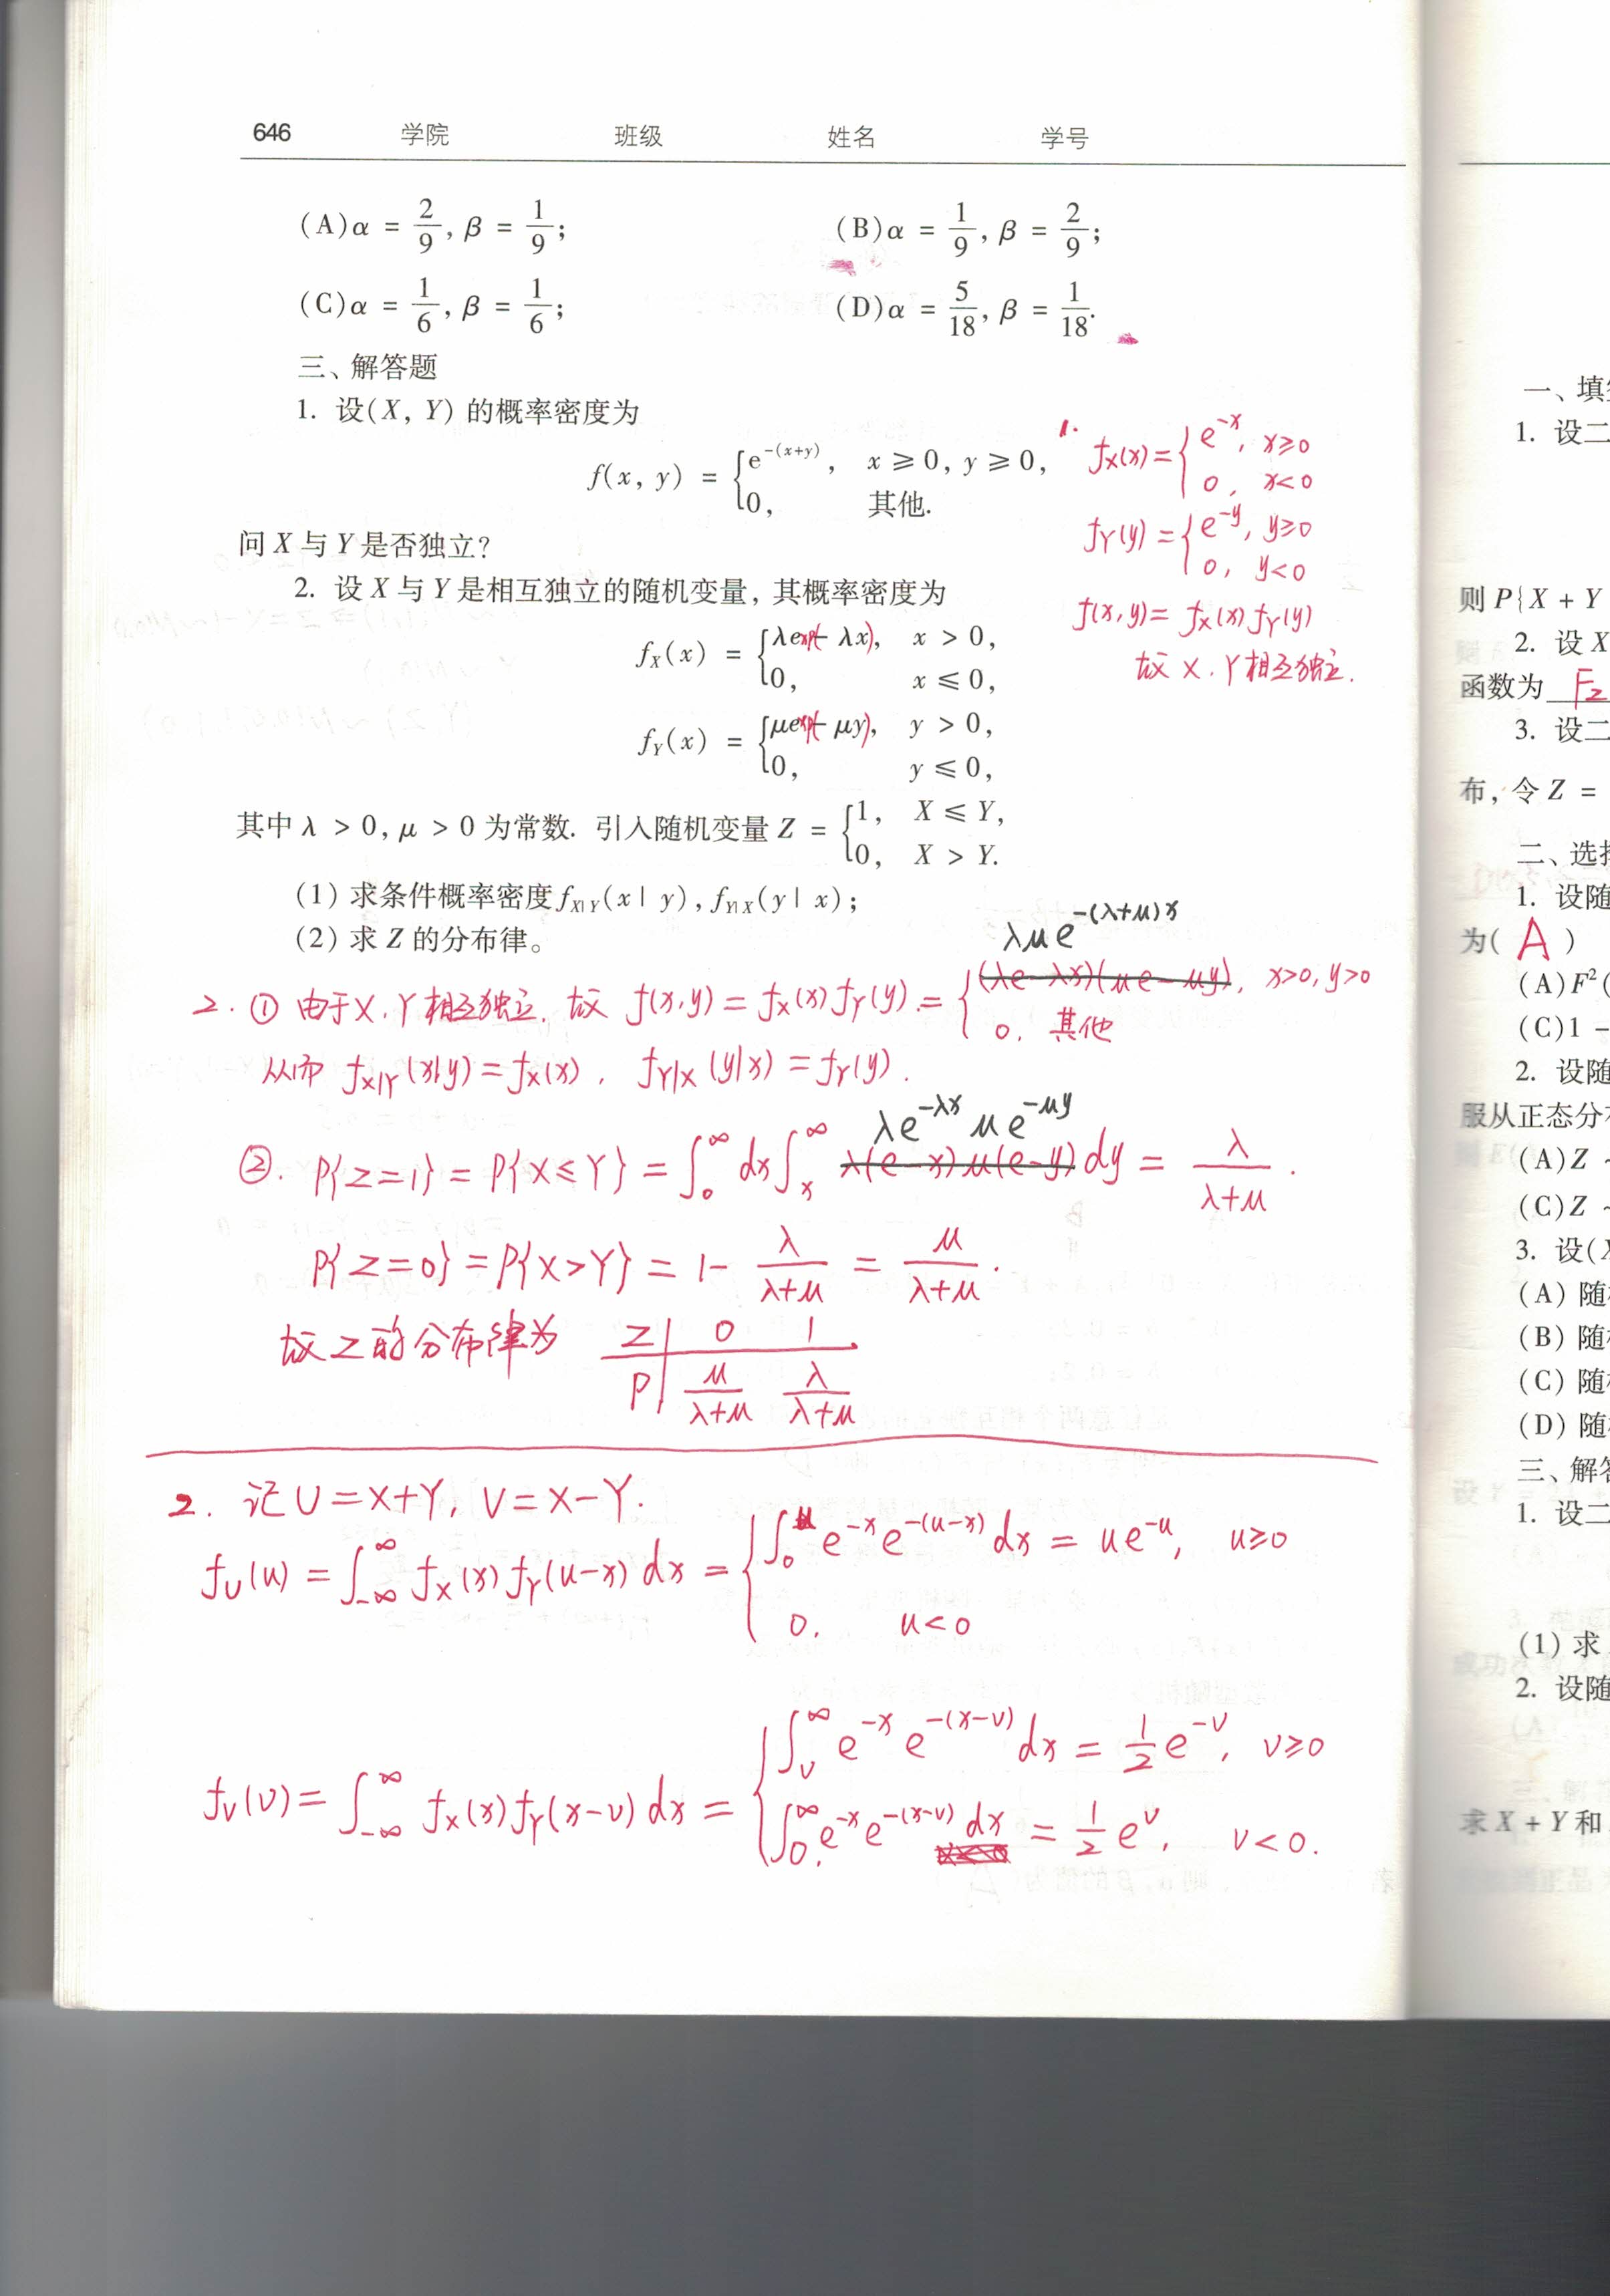 646 学院 班级 姓名 学号
(A)α = 2/9, β = 1/9; (B)α = 1/9, β = 2/9;
(C)α = 1/6, β = 1/6; (D)α = 5/18, β = 1/18.
三、解答题
1. 设(X, Y) 的概率密度为
f(x, y) = { e^{-(x+y)}, x ≥ 0, y ≥ 0,
0, 其他.
问 X 与 Y 是否独立?
1. f_X(x) = { e^{-x}, x≥0
0, x<0
f_Y(y) = { e^{-y}, y≥0
0, y<0
f(x,y) = f_X(x) f_Y(y)
故 X, Y 相互独立.
2. 设 X 与 Y 是相互独立的随机变量, 其概率密度为
f_X(x) = { λexp(- λx), x > 0,
0, x ≤ 0,
f_Y(x) = { μexp(- μy), y > 0,
0, y ≤ 0,
其中 λ > 0, μ > 0 为常数. 引入随机变量 Z = { 1, X ≤ Y,
0, X > Y.
(1) 求条件概率密度 f_{X|Y}(x | y), f_{Y|X}(y | x);
(2) 求 Z 的分布律。
λμe^{-(λ+μ)x}
2. ① 由于 X, Y 相互独立, 故 f(x,y) = f_X(x) f_Y(y) = { (λe-λx)(μe-μy), x>0, y>0
0, 其他
从而 f_{X|Y}(x|y) = f_X(x), f_{Y|X}(y|x) = f_Y(y).
λe^{-λx} μe^{-μy}
②. P{Z=1} = P{X≤Y} = ∫_0^∞ dx ∫_x^∞ λ(e-x)μ(e-y) dy = λ/(λ+μ).
P{Z=0} = P{X>Y} = 1- λ/(λ+μ) = μ/(λ+μ).
故 Z 的分布律为 Z | 0 1
P | μ/(λ+μ) λ/(λ+μ)
2. 记 U = X+Y, V = X-Y.
f_U(u) = ∫_{-∞}^∞ f_X(x) f_Y(u-x) dx = { ∫_0^u e^{-x} e^{-(u-x)} dx = ue^{-u}, u≥0
0. u<0
f_V(v) = ∫_{-∞}^∞ f_X(x) f_Y(x-v) dx = { ∫_v^∞ e^{-x} e^{-(x-v)} dx = 1/2 e^{-v}, v≥0
∫_0^∞ e^{-x} e^{-(x-v)} dx = 1/2 e^v, v<0.
一、填
1. 设二
则 P{X + Y
2. 设 X
函数为 F_Z
3. 设二
布, 令 Z =
二、选择
1. 设随
为( A )
(A)F²(
(C)1 -
2. 设随
服从正态分布
(A)Z ~
(C)Z ~
3. 设(X
(A) 随
(B) 随
(C) 随
(D) 随
三、解答
1. 设二
(1) 求
2. 设随
求 X + Y 和